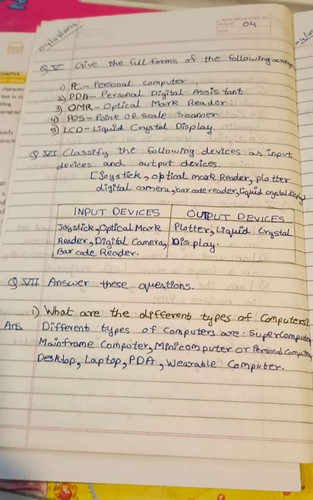 04
Q.V Give the full forms of the following
1) PC - Personal Computer
2) PDA - Personal Digital Assistant
3) OMR - Optical Mark Reader
4) POS - Point Of Scale Scanner
5) LCD - Liquid Crystal Display
Q VI Classify the following devices as input
devices and output devices.
[Joystick, optical mark Reader, plotter
digital camera, bar code reader, liquid crystal display
INPUT DEVICES OUTPUT DEVICES
Joystick, Optical Mark Plotter, Liquid Crystal
Reader, Digital Camera, Display.
Bar code Reader.
Q VII Answer these questions.
1) What are the different types of Computers?
Ans Different types of computers are: Supercomputer
Mainframe Computer, Minicomputer or Personal Computer,
Desktop, Laptop, PDA, Wearable Computer.